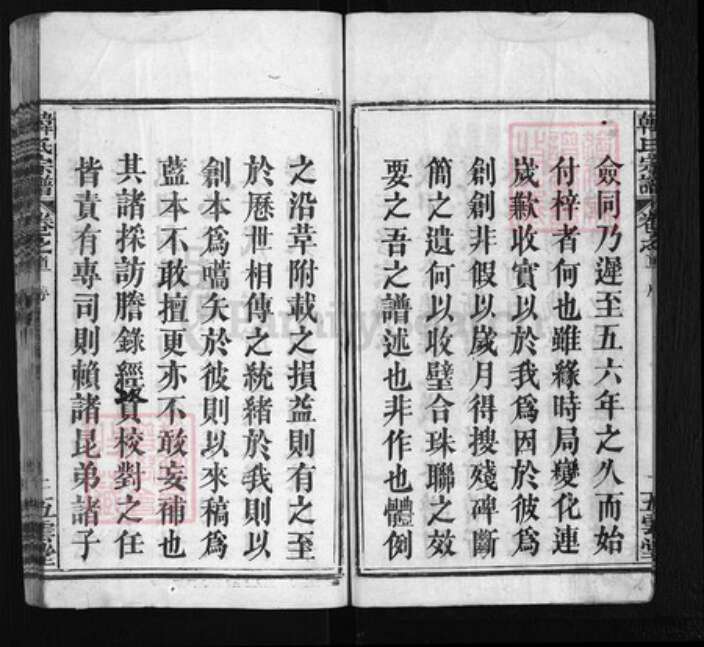 韓氏宗譜 卷之首 序
僉同乃遲至五六年之久而始
付梓者何也雖緣時局變化連
歲歉收實以於我爲因於彼爲
創創非假以歲月得搜殘碑斷
簡之遺何以收壁合珠聯之效
要之吾之譜述也非作也體例
五雲堂
之沿革附載之損益則有之至
於歷世相傳之統緒於我則以
創本爲嚆矢於彼則以來稿爲
藍本不敢擅更亦不敢妄補也
其諸採訪謄錄經費校對之任
皆責有專司則賴諸昆弟諸子
韓氏宗譜 卷之首 序
五雲堂
FamilySearch